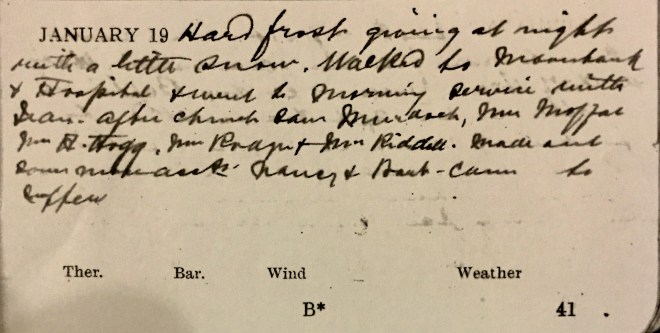 JANUARY 19 Hard frost giving at night
with a little snow. Walked to Moorbank
& Hospital & went to Morning Service with
Jean. After church saw Murdoch, Mrs Moffat
Mrs A. Hogg, Mrs Rodger & Mrs Riddell. Made out
some more accts. Nancy & Bart - came to
supper
Ther. Bar. Wind Weather
B* 41